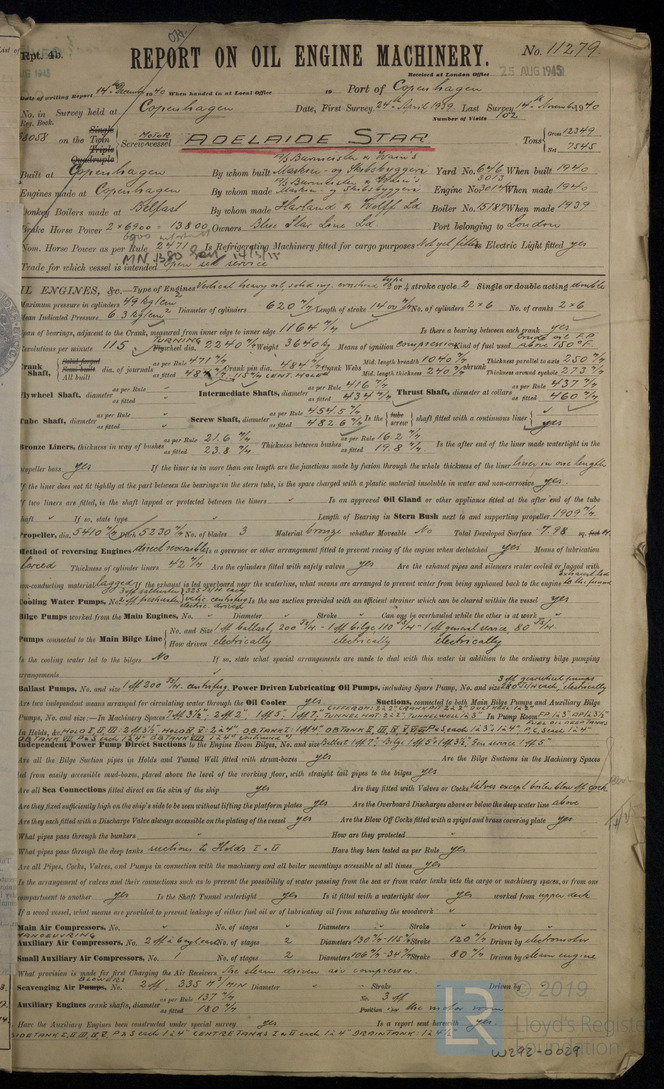 Rpt. 4b.
REPORT ON OIL ENGINE MACHINERY.
No. 11279.
Received at London Office
25 AUG 1945
Date of writing Report 14th December 1940 When handed in at Local Office 19 Port of Copenhagen
No. in Survey held at Copenhagen Date, First Survey 24th April 1939 Last Survey 14th November 1940
Reg. Book. Number of Visits 152
38058 on the Single Twin Triple Quadruple Screw vessel MOTOR ADELAIDE STAR Tons Gross 12349 Net 7545
Built at Copenhagen By whom built A/S Burmeister & Wain's Maskin og Skibsbyggeri Yard No. 646 When built 1940
Engines made at Copenhagen By whom made A/S Burmeister & Wain's Maskin og Skibsbyggeri Engine No. 3013 3014 When made 1940
Donkey Boilers made at Belfast By whom made Harland & Wolff Ld Boiler No. 15189 When made 1939
Brake Horse Power 2 × 6900 = 13800 Owners Blue Star Line Ld. Port belonging to London
Nom. Horse Power as per Rule 2471 Is Refrigerating Machinery fitted for cargo purposes Not yet fitted Is Electric Light fitted yes
Trade for which vessel is intended Open sea service
OIL ENGINES, &c.—Type of Engines Vertical heavy oil, solid inj. 2 or 4 stroke cycle 2 Single or double acting double
Maximum pressure in cylinders 49 kg/cm2 Diameter of cylinders 620 m/m Length of stroke 1400 m/m No. of cylinders 2×6 No. of cranks 2×6
Mean Indicated Pressure 6.3 kg/cm2
Span of bearings, adjacent to the Crank, measured from inner edge to inner edge 1164 m/m Is there a bearing between each crank yes
Revolutions per minute 115 TURNING Flywheel dia. 2240 m/m Weight 3640 kg Means of ignition compression Kind of fuel used Crude oil F.P. above 150° F.
Crank Shaft, Solid forged Semi built All built dia. of journals as per Rule 471 m/m as fitted Crank pin dia. 484 m/m Crank Webs Mid. length breadth 1040 m/m Mid. length thickness 240 m/m shrunk Thickness parallel to axis 250 m/m Thickness around eyehole 273 m/m
Flywheel Shaft, diameter as per Rule as fitted Intermediate Shafts, diameter as per Rule 416 m/m as fitted 434 m/m Thrust Shaft, diameter at collars as per Rule 437 m/m as fitted 460 m/m
Tube Shaft, diameter as per Rule as fitted Screw Shaft, diameter as per Rule 454.5 m/m as fitted 482.6 m/m Is the tube screw shaft fitted with a continuous liner yes
Bronze Liners, thickness in way of bushes as per Rule 21.6 m/m as fitted 23.8 m/m Thickness between bushes as per Rule 16.2 m/m as fitted 19.8 m/m Is the after end of the liner made watertight in the
propeller boss yes If the liner is in more than one length are the junctions made by fusion through the whole thickness of the liner liner in one length
If the liner does not fit tightly at the part between the bearings in the stern tube, is the space charged with a plastic material insoluble in water and non-corrosive yes.
If two liners are fitted, is the shaft lapped or protected between the liners " Is an approved Oil Gland or other appliance fitted at the after end of the tube
shaft " If so, state type Length of Bearing in Stern Bush next to and supporting propeller 1909 m/m
Propeller, dia. 5410 m/m Pitch 5230 m/m No. of blades 3 Material bronze whether Moveable No Total Developed Surface 7.98 sq.
Method of reversing Engines direct reversible Is a governor or other arrangement fitted to prevent racing of the engine when declutched yes Means of lubrication
forced Thickness of cylinder liners 42 m/m Are the cylinders fitted with safety valves yes Are the exhaust pipes and silencers water cooled or lagged with
non-conducting material lagged If the exhaust is led overboard near the waterline, what means are arranged to prevent water from being syphoned back to the engine
Cooling Water Pumps, No. Is the sea suction provided with an efficient strainer which can be cleared within the vessel yes
Bilge Pumps worked from the Main Engines, No. " Diameter " Stroke " Can one be overhauled while the other is at work "
Pumps connected to the Main Bilge Line No. and Size 1 off ballast, 200 T/H. - 1 off bilge 110 T/H - 1 off general service 80 T/H.
How driven electrically electrically electrically
Is the cooling water led to the bilges No If so, state what special arrangements are made to deal with this water in addition to the ordinary bilge pumping
arrangements
Ballast Pumps, No. and size 1 off 200 T/H. centrifug. Power Driven Lubricating Oil Pumps, including Spare Pump, No. and size electrically
Are two independent means arranged for circulating water through the Oil Cooler yes Suctions, connected to both Main Bilge Pumps and Auxiliary Bilge
Pumps, No. and size:—In Machinery Spaces In Pump Room
In Holds, &c.
Independent Power Pump Direct Suctions to the Engine Room Bilges, No. and size Ballast 1 off 7", Bilge 1 off 5" 1 off 3½", Gen service 1 off 5"
Are all the Bilge Suction pipes in Holds and Tunnel Well fitted with strum-boxes yes Are the Bilge Suctions in the Machinery Spaces
led from easily accessible mud-boxes, placed above the level of the working floor, with straight tail pipes to the bilges yes
Are all Sea Connections fitted direct on the skin of the ship yes Are they fitted with Valves or Cocks Valves except boiler blow off cock
Are they fixed sufficiently high on the ship's side to be seen without lifting the platform plates yes Are the Overboard Discharges above or below the deep water line above
Are they each fitted with a Discharge Valve always accessible on the plating of the vessel yes Are the Blow Off Cocks fitted with a spigot and brass covering plate yes
What pipes pass through the bunkers " How are they protected "
What pipes pass through the deep tanks suctions to Holds I & II Have they been tested as per Rule yes
Are all Pipes, Cocks, Valves, and Pumps in connection with the machinery and all boiler mountings accessible at all times yes
Is the arrangement of valves and their connections such as to prevent the possibility of water passing from the sea or from water tanks into the cargo or machinery spaces, or from one
compartment to another yes Is the Shaft Tunnel watertight yes Is it fitted with a watertight door yes worked from upper deck
If a wood vessel, what means are provided to prevent leakage of either fuel oil or of lubricating oil from saturating the woodwork "
Main Air Compressors, No. " No. of stages " Diameters " Stroke " Driven by "
MANOEUVRING
Auxiliary Air Compressors, No. 2 off à 6 cyl each No. of stages 2 Diameters 130 m/m - 115 m/m Stroke 120 m/m Driven by electromotor
Small Auxiliary Air Compressors, No. 1 No. of stages 2 Diameters Stroke 80 m/m Driven by steam engine
What provision is made for first Charging the Air Receivers The steam driven air compressor.
BLOWERS
Scavenging Air Pumps, No. 2 off, 335 m3/MIN Diameter " Stroke " Driven by "
Auxiliary Engines crank shafts, diameter as per Rule 137 m/m as fitted 180 m/m No. 3 off Position In the motor room
Have the Auxiliary Engines been constructed under special survey. yes Is a report sent herewith yes.
© 2019
Lloyd's Register
Foundation
W292-0029